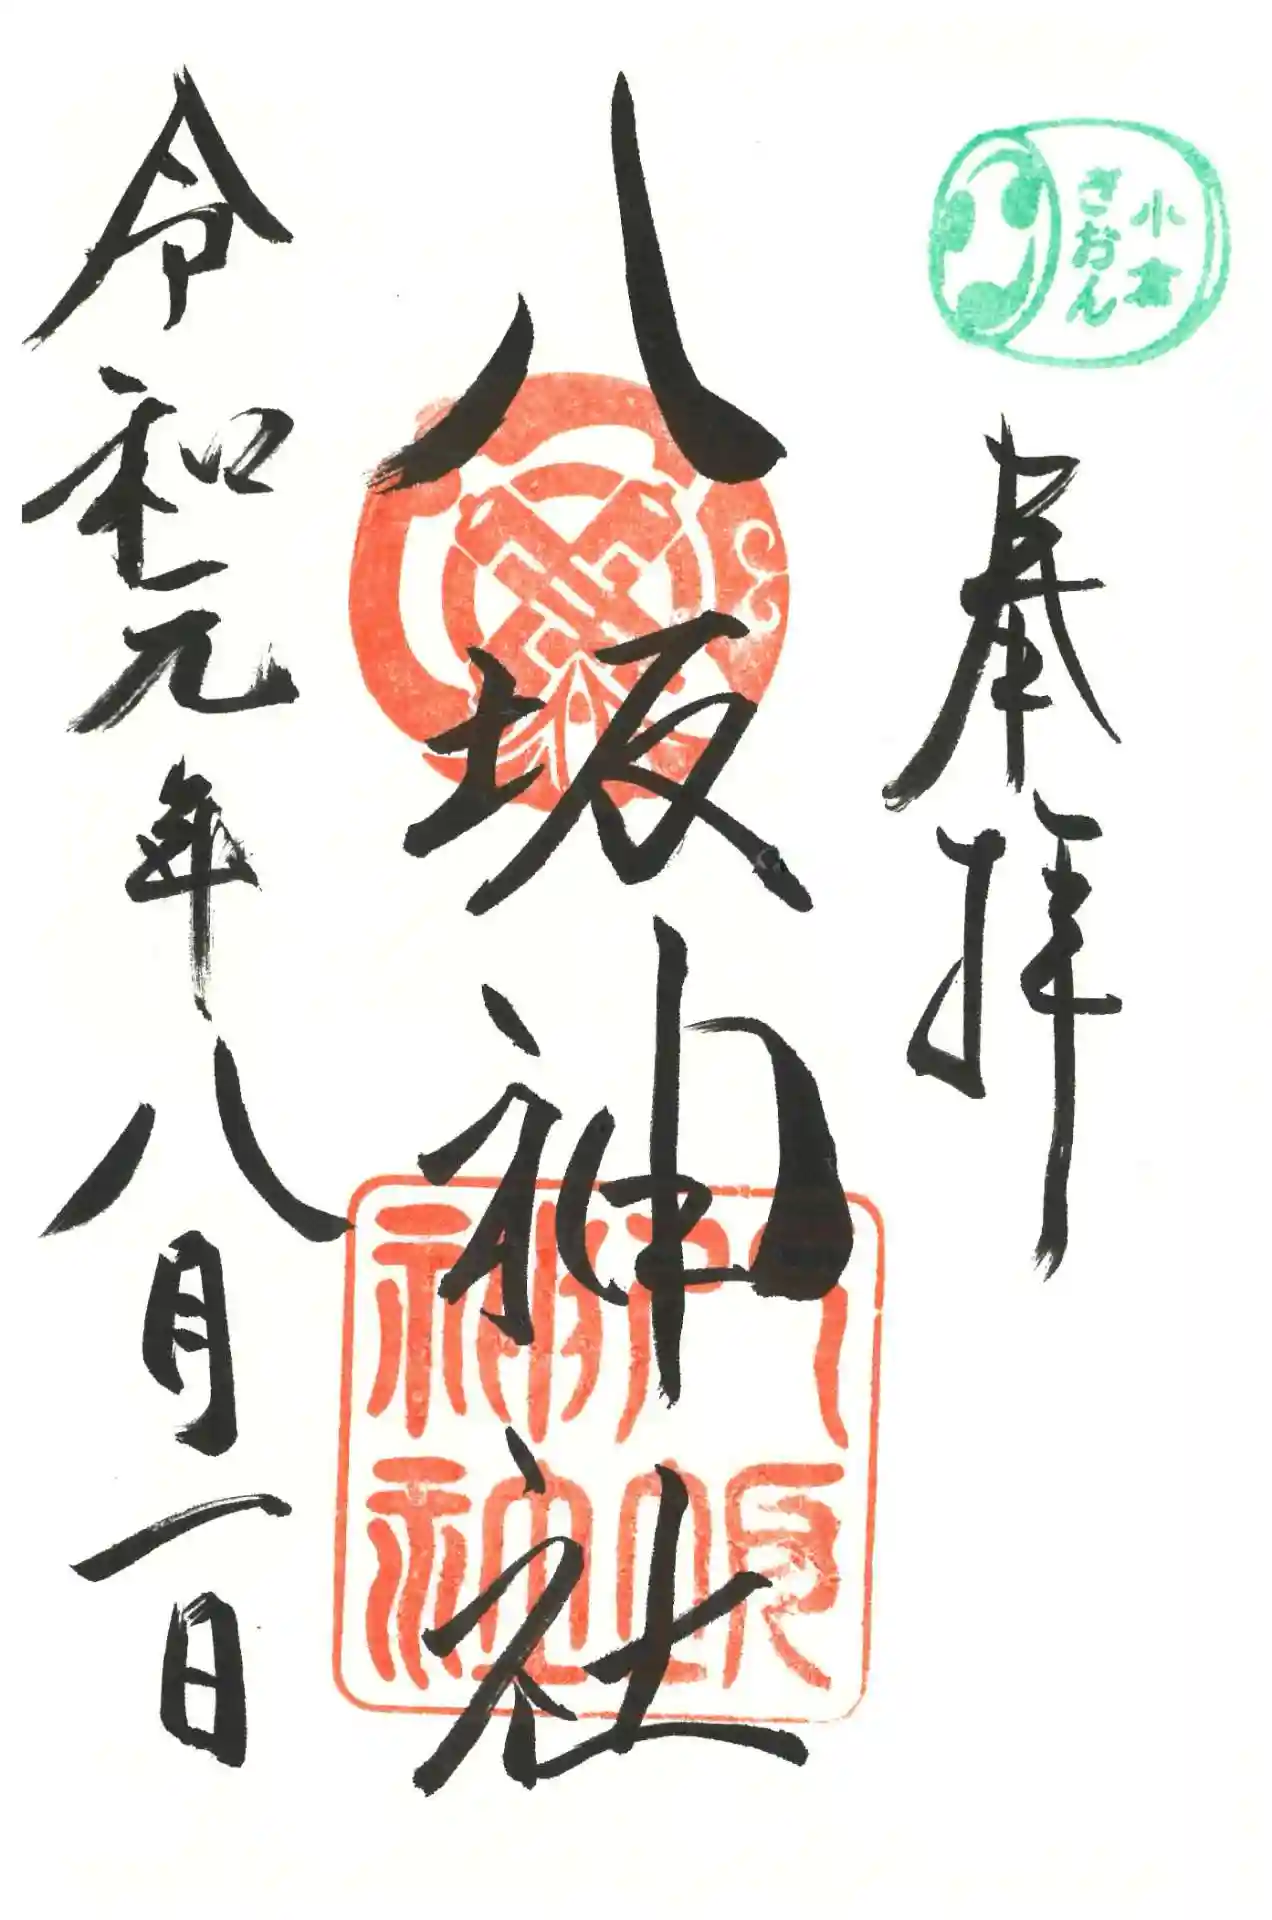 小倉
ぎおん
奉拝
八坂神社
八坂神社
令和元年八月一日